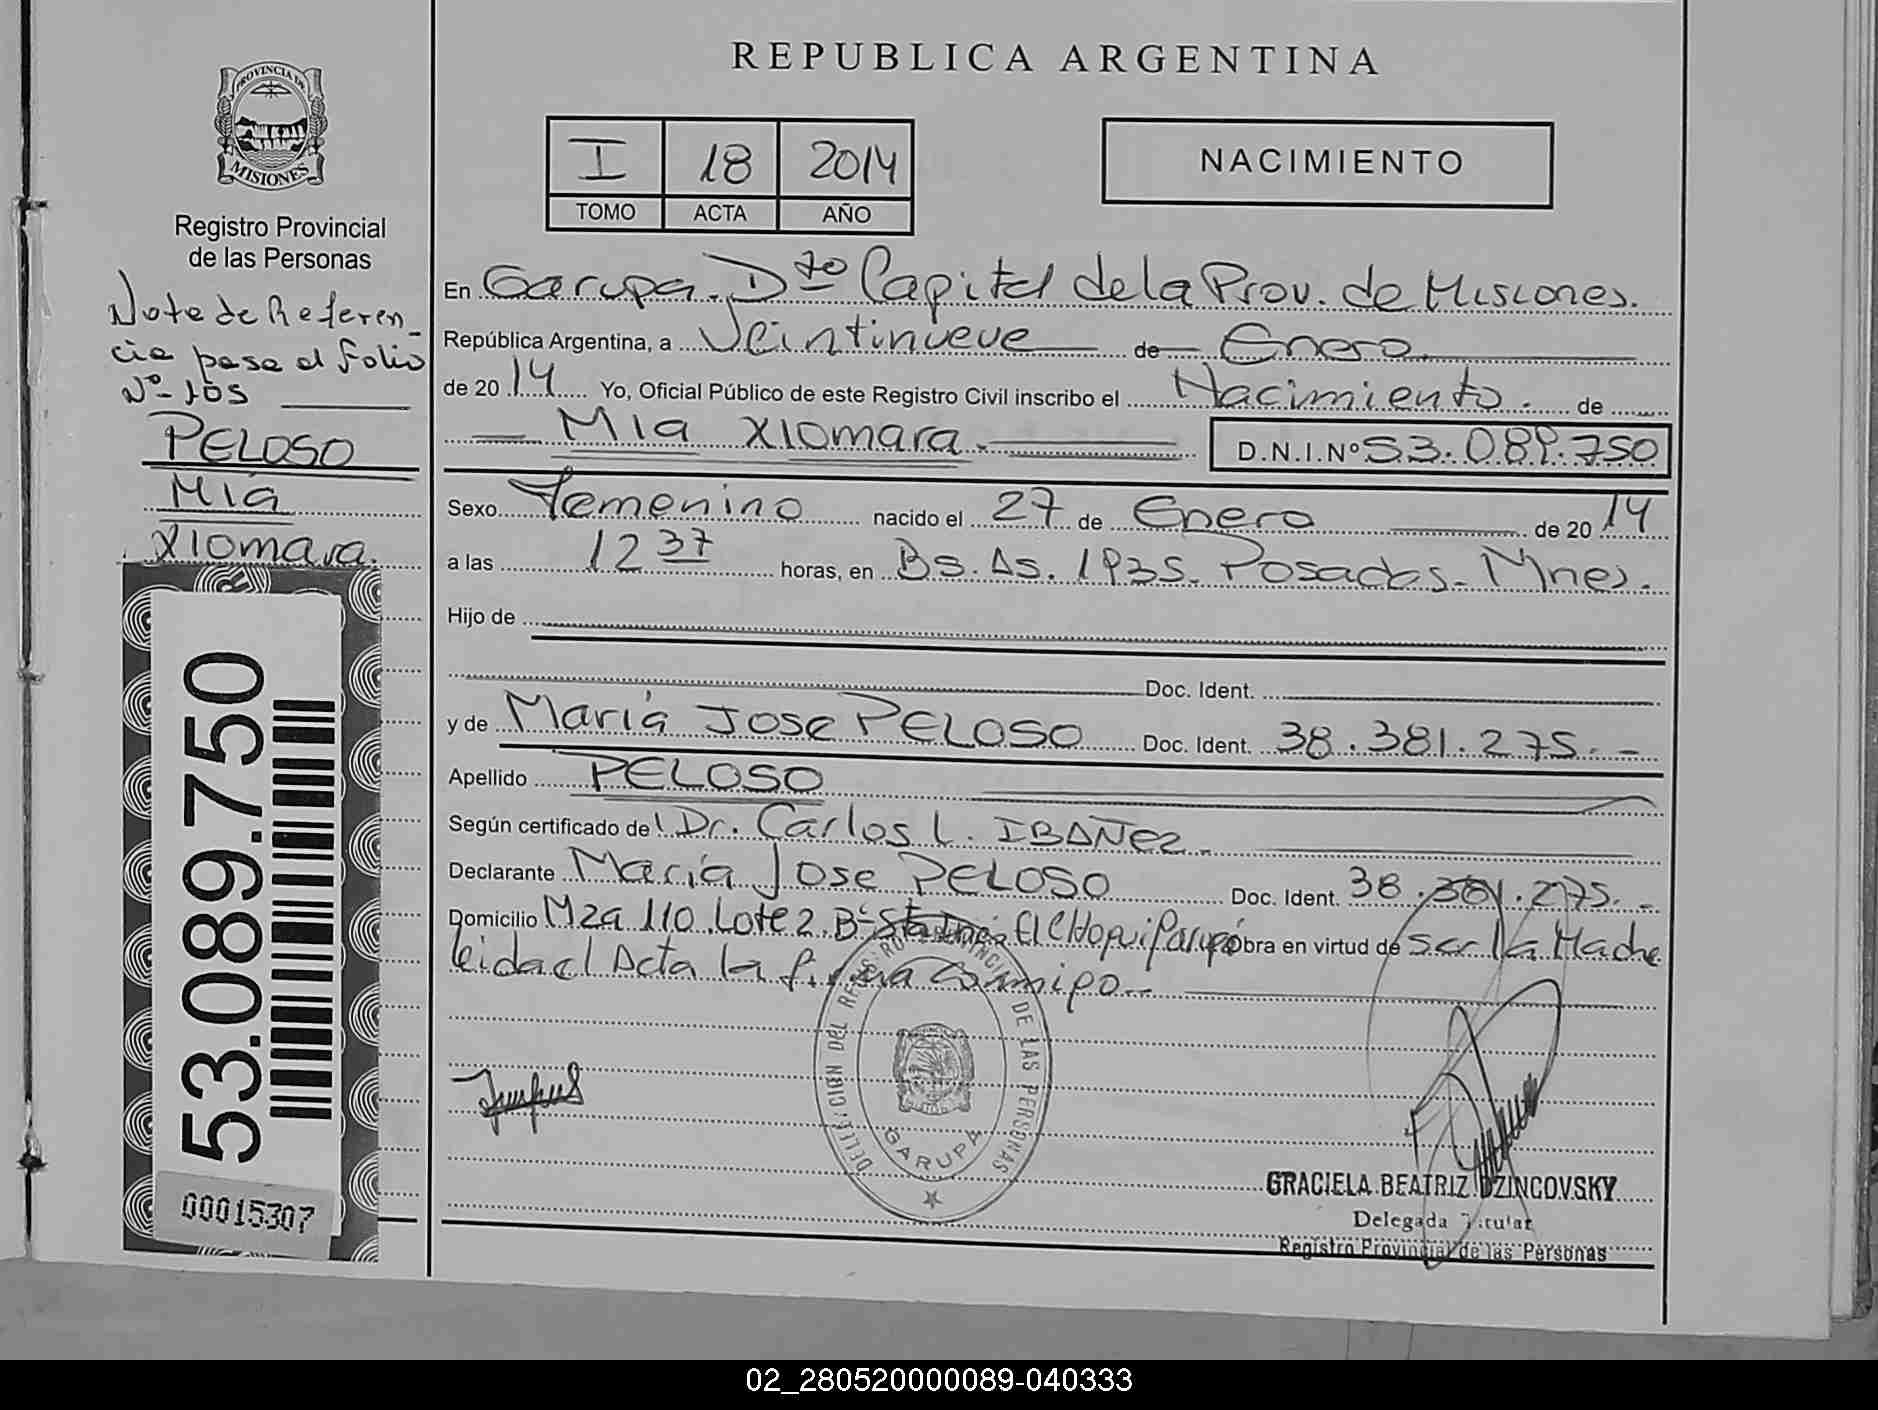 REPUBLICA ARGENTINA
PROVINCIA DE
MISIONES
Registro Provincial
de las Personas
I 18 2014
TOMO ACTA AÑO
NACIMIENTO
Nota de Referen-
cia pasa al folio
Nº 105
PELOSO
Mía
Xiomara.
53.089.750
00015307
En Garupa. Dto Capital de la Prov. de Misiones.
República Argentina, a Veintinueve de Enero
de 2014 Yo, Oficial Público de este Registro Civil inscribo el Nacimiento. de
Mía Xiomara. D.N.I.Nº 53.089.750
Sexo Femenino nacido el 27 de Enero de 2014
a las 12 37 horas, en Bs. As. 1935. Posadas - Mnes.
Hijo de
Doc. Ident.
y de María Jose PELOSO Doc. Ident. 38.381.275.-
Apellido PELOSO
Según certificado de Dr. Carlos L. IBAÑEZ.
Declarante María Jose PELOSO Doc. Ident. 38.381.275.-
Domicilio Mza 110 Lote 2. Bº Sta Ines. Obra en virtud de ser la Madre
leida el Acta la firma conmigo.-
DELEGACION DEL REGISTRO PROVINCIAL DE LAS PERSONAS
GARUPA
GRACIELA BEATRIZ DZINCOVSKY
Delegada Titular
Registro Provincial de las Personas
02_280520000089-040333